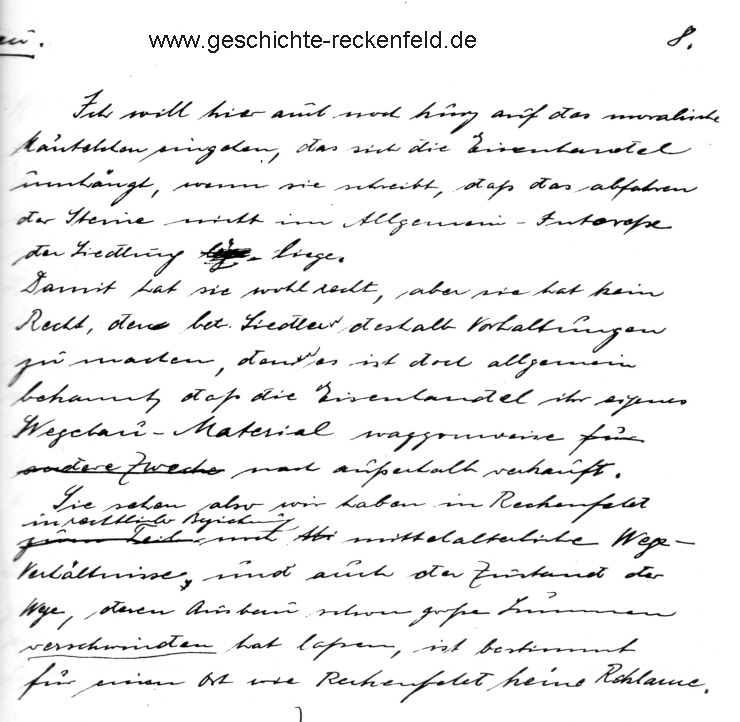 www.geschichte-reckenfeld.de
8.
Ich will hier auch noch kurz auf das moralische
Mäntelchen eingehen, das sich die Eisenhandel
umhängt, wenn sie schreibt, daß das abfahren
der Steine nicht im Allgemein-Interesse
der Siedlung liege.
Damit hat sie wohl recht, aber sie hat kein
Recht, den bet. Siedlern deshalb Vorhaltungen
zu machen, denn es ist doch allgemein
bekannt, daß die Eisenhandel ihr eigenes
Wegebau-Material waggonweise für
andere Zwecke nach außerhalb verkauft.
Sie sehen also wir haben in Reckenfeld
in rechtlicher Beziehung
zum Teil noch mittelalterliche Wege-
Verhältnisse, und auch der Zustand der
Wege, deren Ausbau schon große Summen
verschwinden hat lassen, ist bestimmt
für einen Ort wie Reckenfeld keine Reklame.